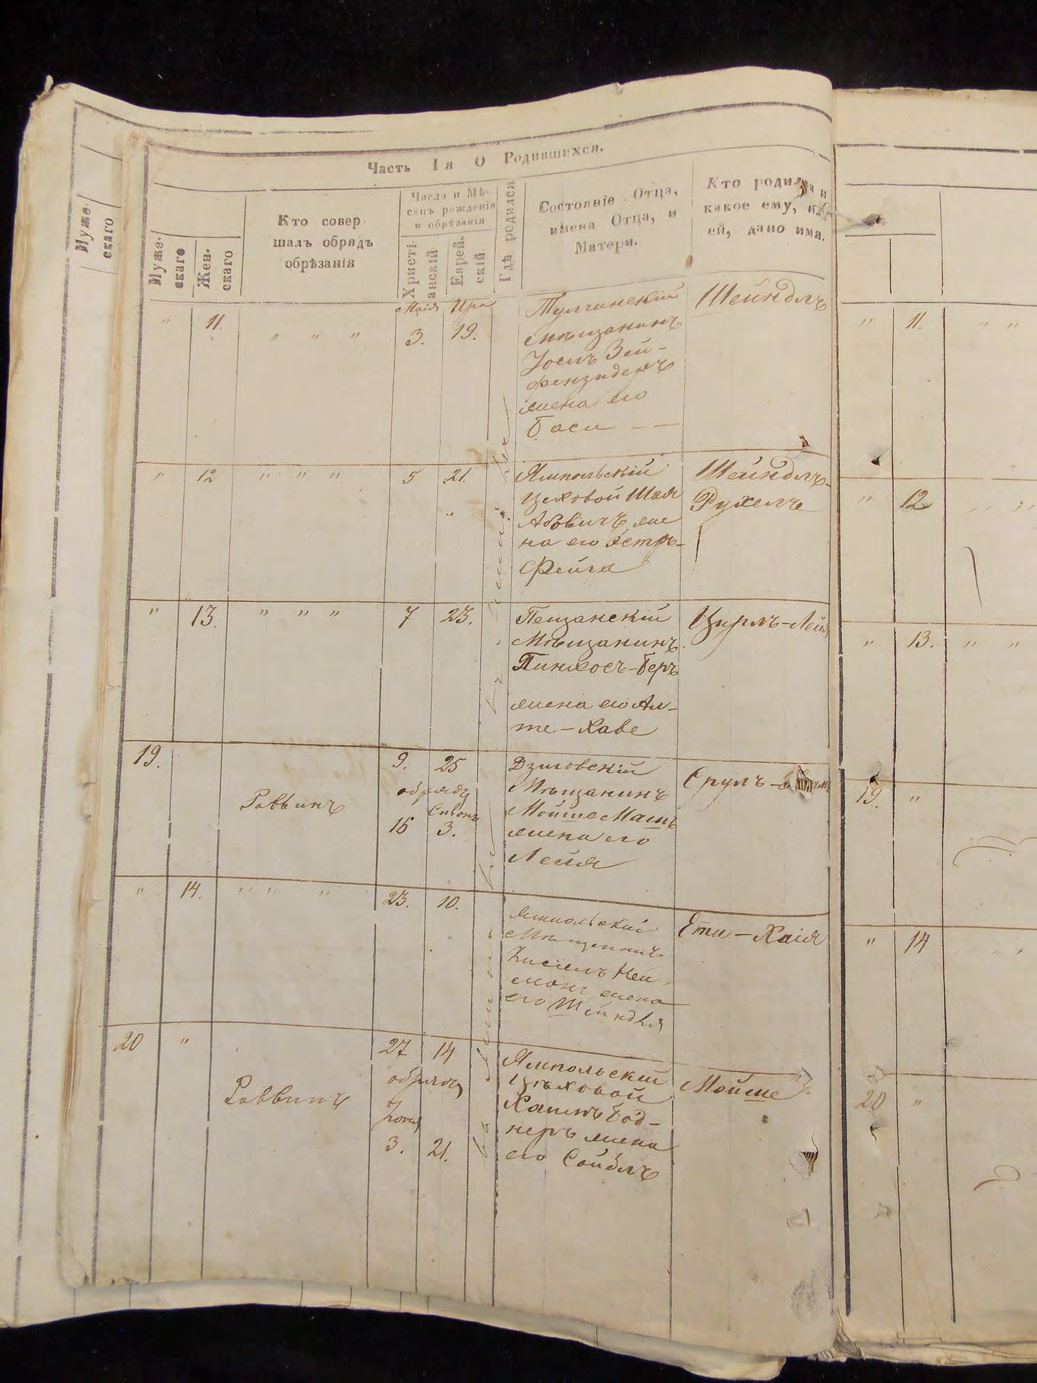 Часть Iя О Родившихся.
Муже-
скаго
Муже-
скаго
Жен-
скаго
Кто совер
шалъ обрядъ
обрѣзанія
Числа и Мѣ-
сяцъ рожденія
и обрѣзанія
Христі-
анскій
Еврей-
скій
Гдѣ родился
Состояніе Отца,
имена Отца, и
Матери.
Кто родился и
какое ему, или
ей, дано имя.
" 11. " " "
Мая
3.
19.
Тулчинскій
мѣщанинъ
Іосль Зей-
жена его
Баси
Шейндлъ
" 12 " " " 5 21.
Ямпольскій
Цеховой Шая
жe
на его Эстръ-
Фейга
Шейндлъ-
Рухель
" 13. " " " 7 23.
Пещанскій
Мѣщанинъ
Пинхосъ-Беръ
жена его Ал-
те-Хаве
Цирлъ-Лея
19.
Раввинъ
9. 25
обрядъ
Сивона
16 3.
Дзиговскій
Мѣщанинъ
Мойше
жена его
Лейя
Срулъ-
" 14. " " " 23. 10.
Ямпольскій
Мѣщанинъ
Кисіель Ней-
манъ жена
его Шейндля
Ети-Хаія
20 "
Раввинъ
27 14
обрядъ
Іюня
3. 21.
Ямпольскій
Цѣховой
Хаимъ Бод-
неръ жена
его Сойблъ
Мойше
" 11. " "
" 12
" 13. " "
19. "
" 14
20 "